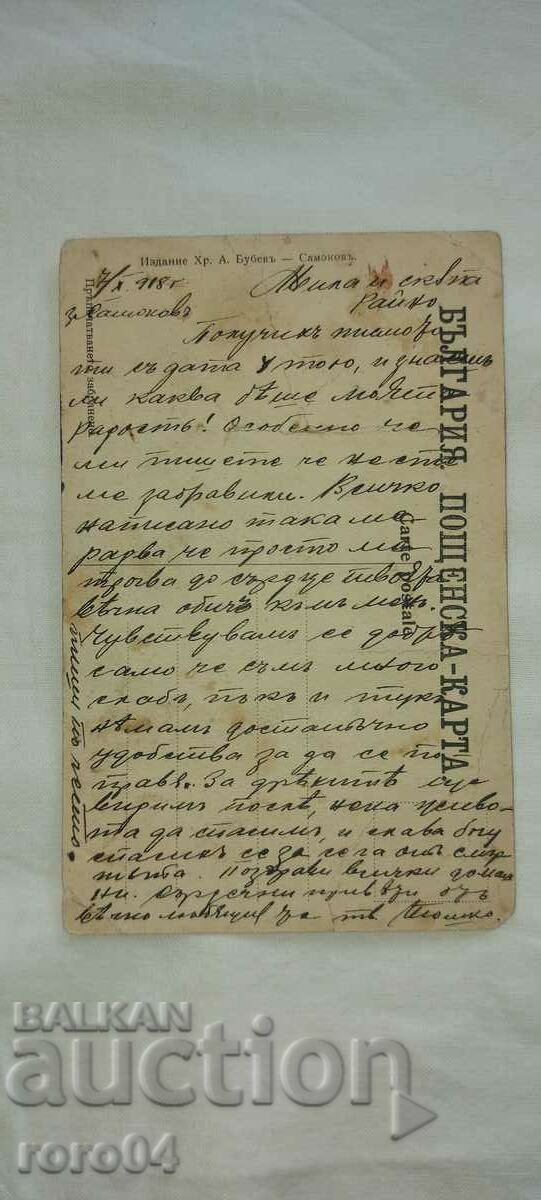 Издание Хр. А. Бубевъ — Самоковъ.
Препечатването забранено
БЪЛГАРИЯ ПОЩЕНСКА-КАРТА
Carte Postale
7/X 918 г.
Самоковъ
Мила и скѫпа
Райно
Получихъ писмото
ти съ дата 4 того, и знаешъ
ли каква бѣше моята
радость! Особенно че
ми пишете че не сте
ме забравили. Всичко
написано така ме
радва че просто ми
трогва до сърдце
вѣчна обичъ къмъ менъ.
Чувствувамъ се добрѣ
само че съмъ много
слабъ, пъкъ и тукъ
нѣмамъ достатъчно
удобства за да се по
правя. За дрѣхитѣ ще
видимъ послѣ, нека живо-
та да спасимъ, и слава богу
спасихъ се за сега отъ смър
тьта. Поздрави всички домаш
ни. Сърдечни привѣти отъ
вѣчно любящия
пиши по често.
BALKAN
auction
roro04